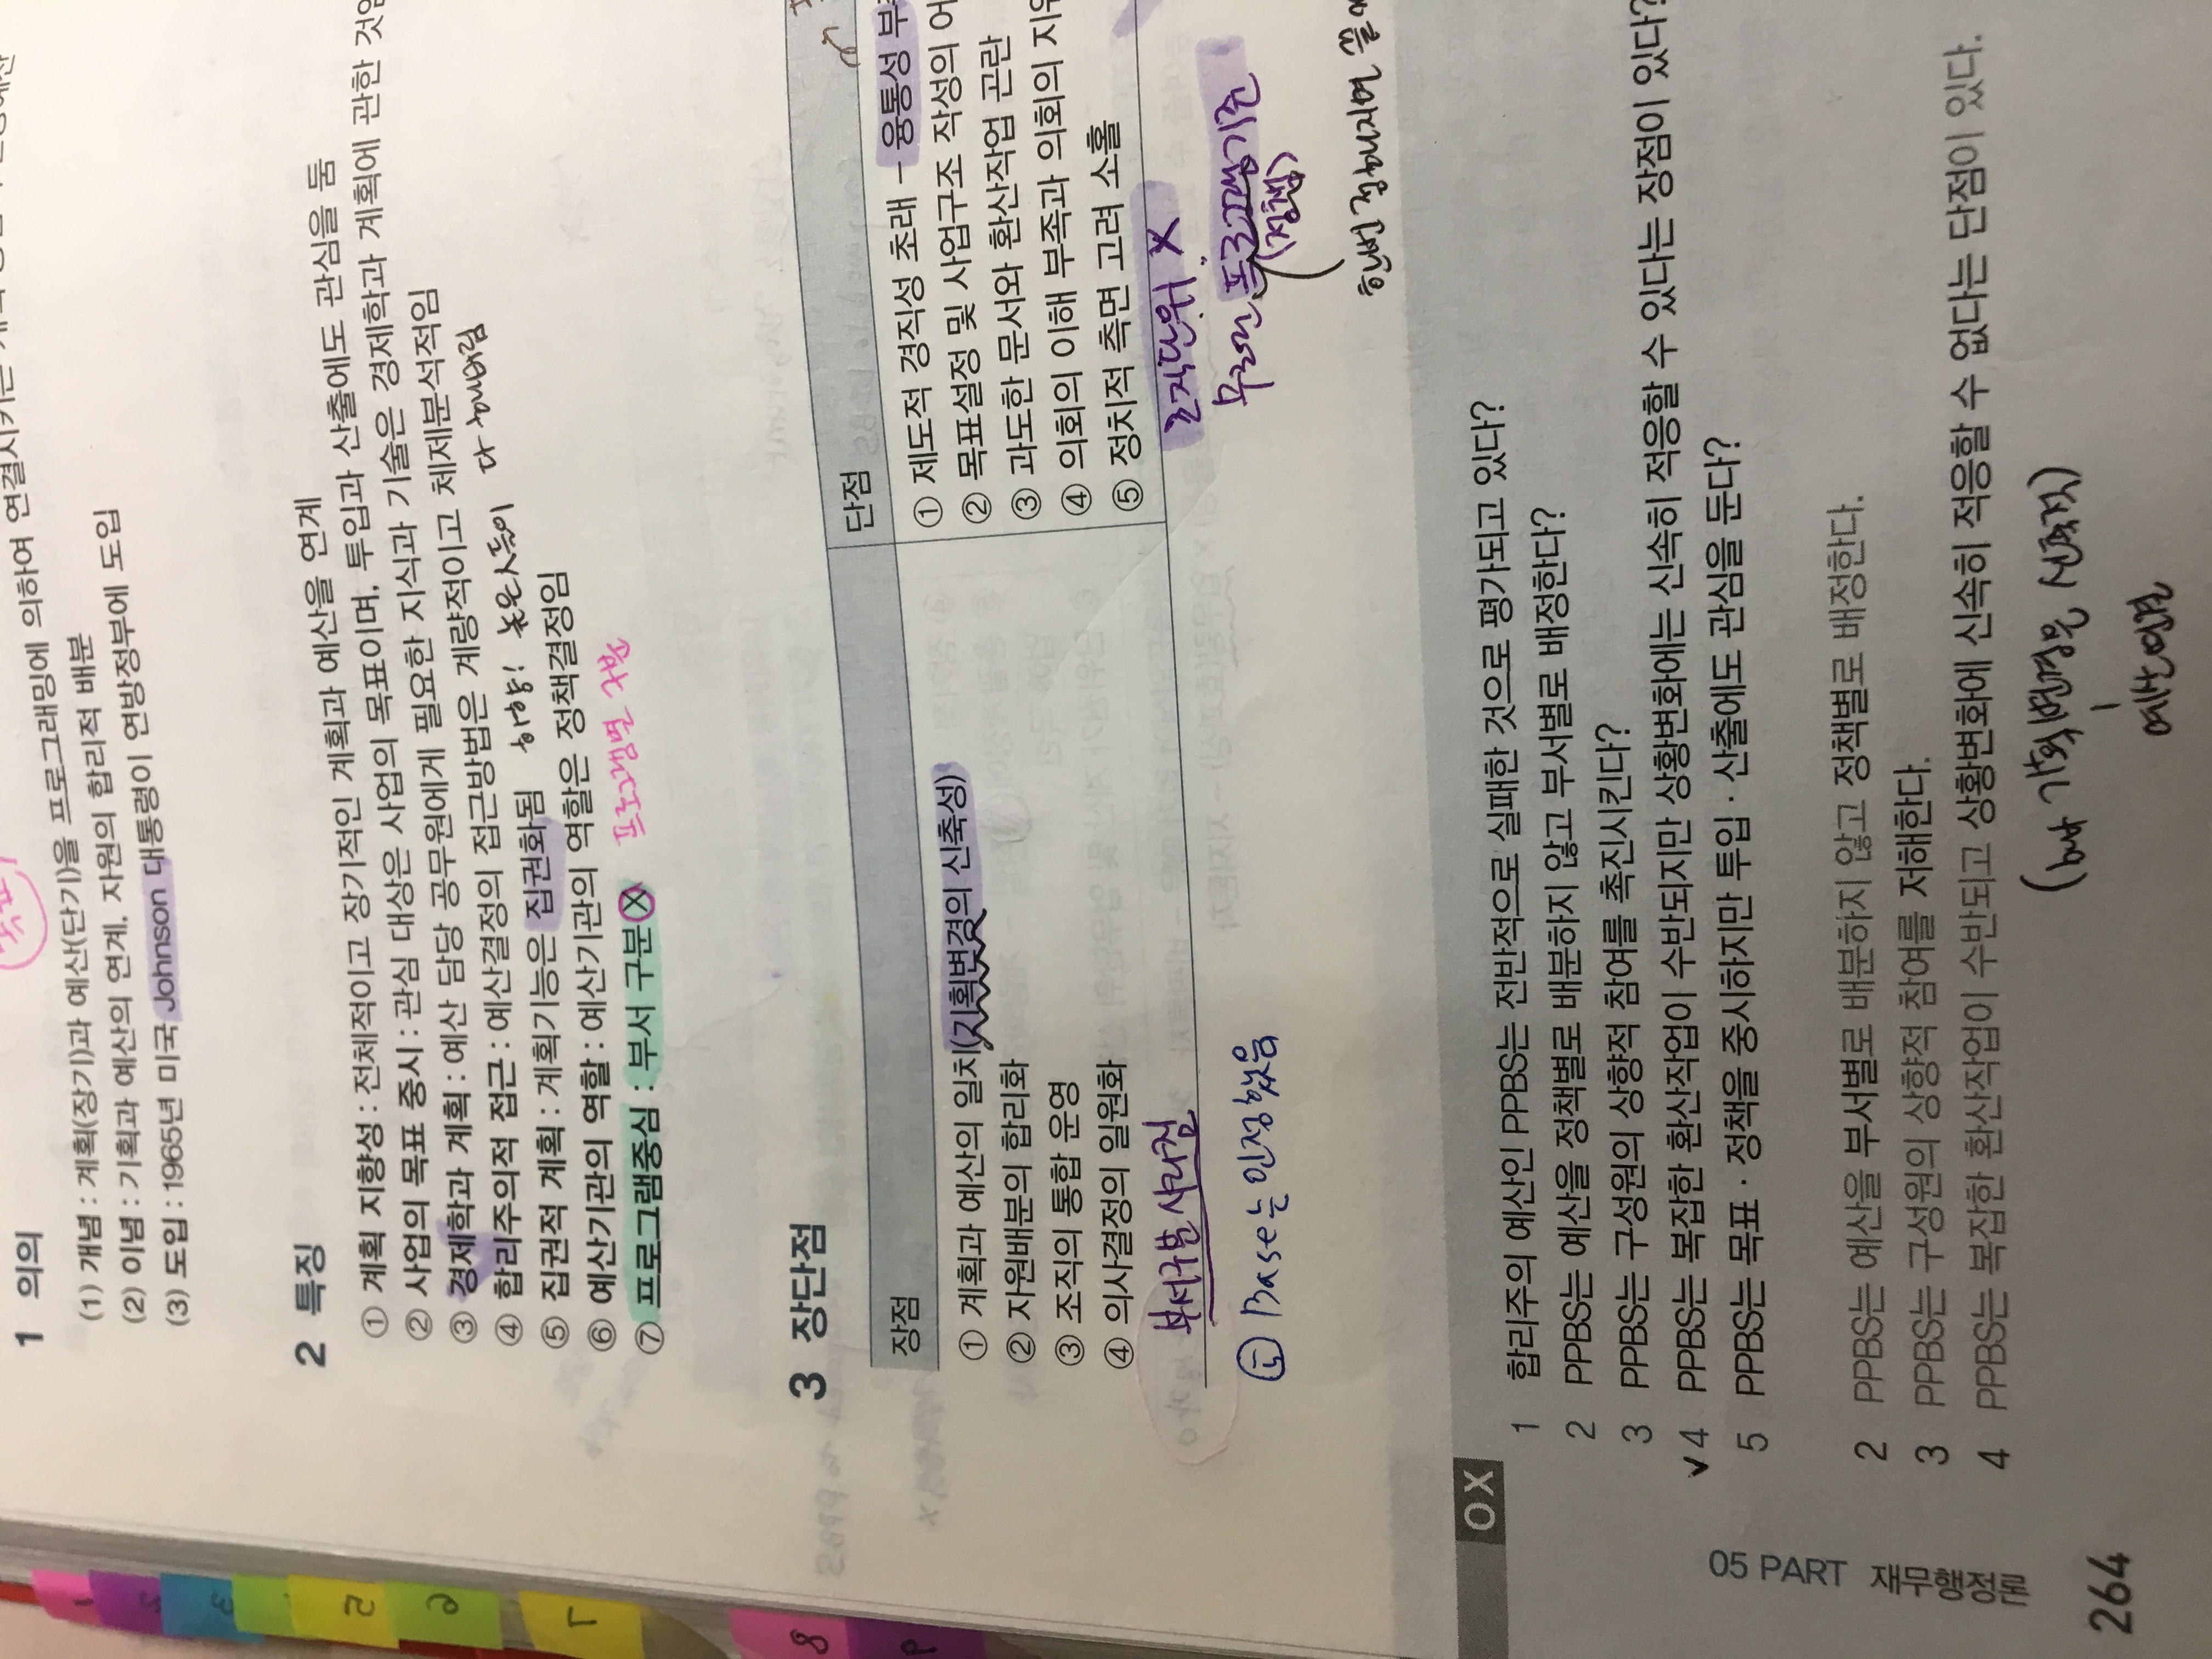 의하여 연결시키는
1 의의
(1) 개념 : 계획(장기)과 예산(단기)을 프로그래밍에
(2) 이념 : 기획과 예산의 연계, 자원의 합리적 배분
(3) 도입 : 1965년 미국 Johnson 대통령이 연방정부에 도입
2 특징
① 계획 지향성 : 전체적이고 장기적인 계획과 예산을 연계
② 사업의 목표 중시 : 관심 대상은 사업의 목표이며, 투입과 산출에도 관심을 둠
③ 경제학과 계획 : 예산 담당 공무원에게 필요한 지식과 기술은 경제학과 계획에 관한 것임
④ 합리주의적 접근 : 예산결정의 접근방법은 계량적이고 체제분석적임
⑤ 집권적 계획 : 계획기능은 집권화됨 하향! 높은사람들이 다 해버림
⑥ 예산기관의 역할 : 예산기관의 역할은 정책결정임
⑦ 프로그램중심 : 부서 구분 X 프로그램별 구분
3 장단점
장점
① 계획과 예산의 일치(기획변경의 신축성)
② 자원배분의 합리화
③ 조직의 통합 운영
④ 의사결정의 일원화
부서구분 사라짐
⑤ Base는 인정했음
단점
① 제도적 경직성 초래 – 융통성 부
② 목표설정 및 사업구조 작성의 어
③ 과도한 문서와 환산작업 곤란
④ 의회의 이해 부족과 의회의 지위
⑤ 정치적 측면 고려 소홀
조직단위 X
무조건 프로그램기준
(정책)
한번 정해지면 끝
OX
1 합리주의 예산인 PPBS는 전반적으로 실패한 것으로 평가되고 있다?
2 PPBS는 예산을 정책별로 배분하지 않고 부서별로 배정한다?
3 PPBS는 구성원의 상향적 참여를 촉진시킨다?
✓4 PPBS는 복잡한 환산작업이 수반되지만 상황변화에는 신속히 적응할 수 있다는 장점이 있다?
5 PPBS는 목표·정책을 중시하지만 투입·산출에도 관심을 둔다?
2 PPBS는 예산을 부서별로 배분하지 않고 정책별로 배정한다.
3 PPBS는 구성원의 상향적 참여를 저해한다.
4 PPBS는 복잡한 환산작업이 수반되고 상황변화에 신속히 적응할 수 없다는 단점이 있다.
(but 기획변경은 신축적)
예산연도
05 PART 재무행정론
264